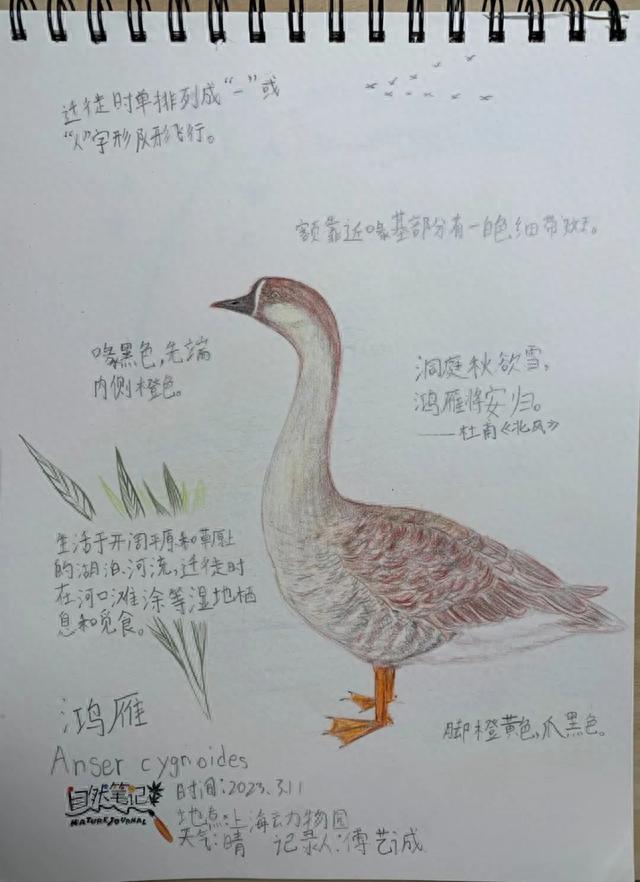 迁徙时单排列成“一”或
“人”字形队形飞行。
额靠近喙基部分有一白色细带效王。
喙黑色,先端
内侧橙色。
洞庭秋欲雪,
鸿雁将安归。
——杜甫《北风》
生活于开阔平原和草原上
的湖泊、河流,迁徙时
在河口、滩涂等湿地栖
息和觅食。
鸿雁
Anser cygnoides
脚橙黄色,爪黑色。
自然笔记
NATURE JOURNAL
时间:2023.3.11
地点:上海动物园
天气:晴 记录人:傅艺诚